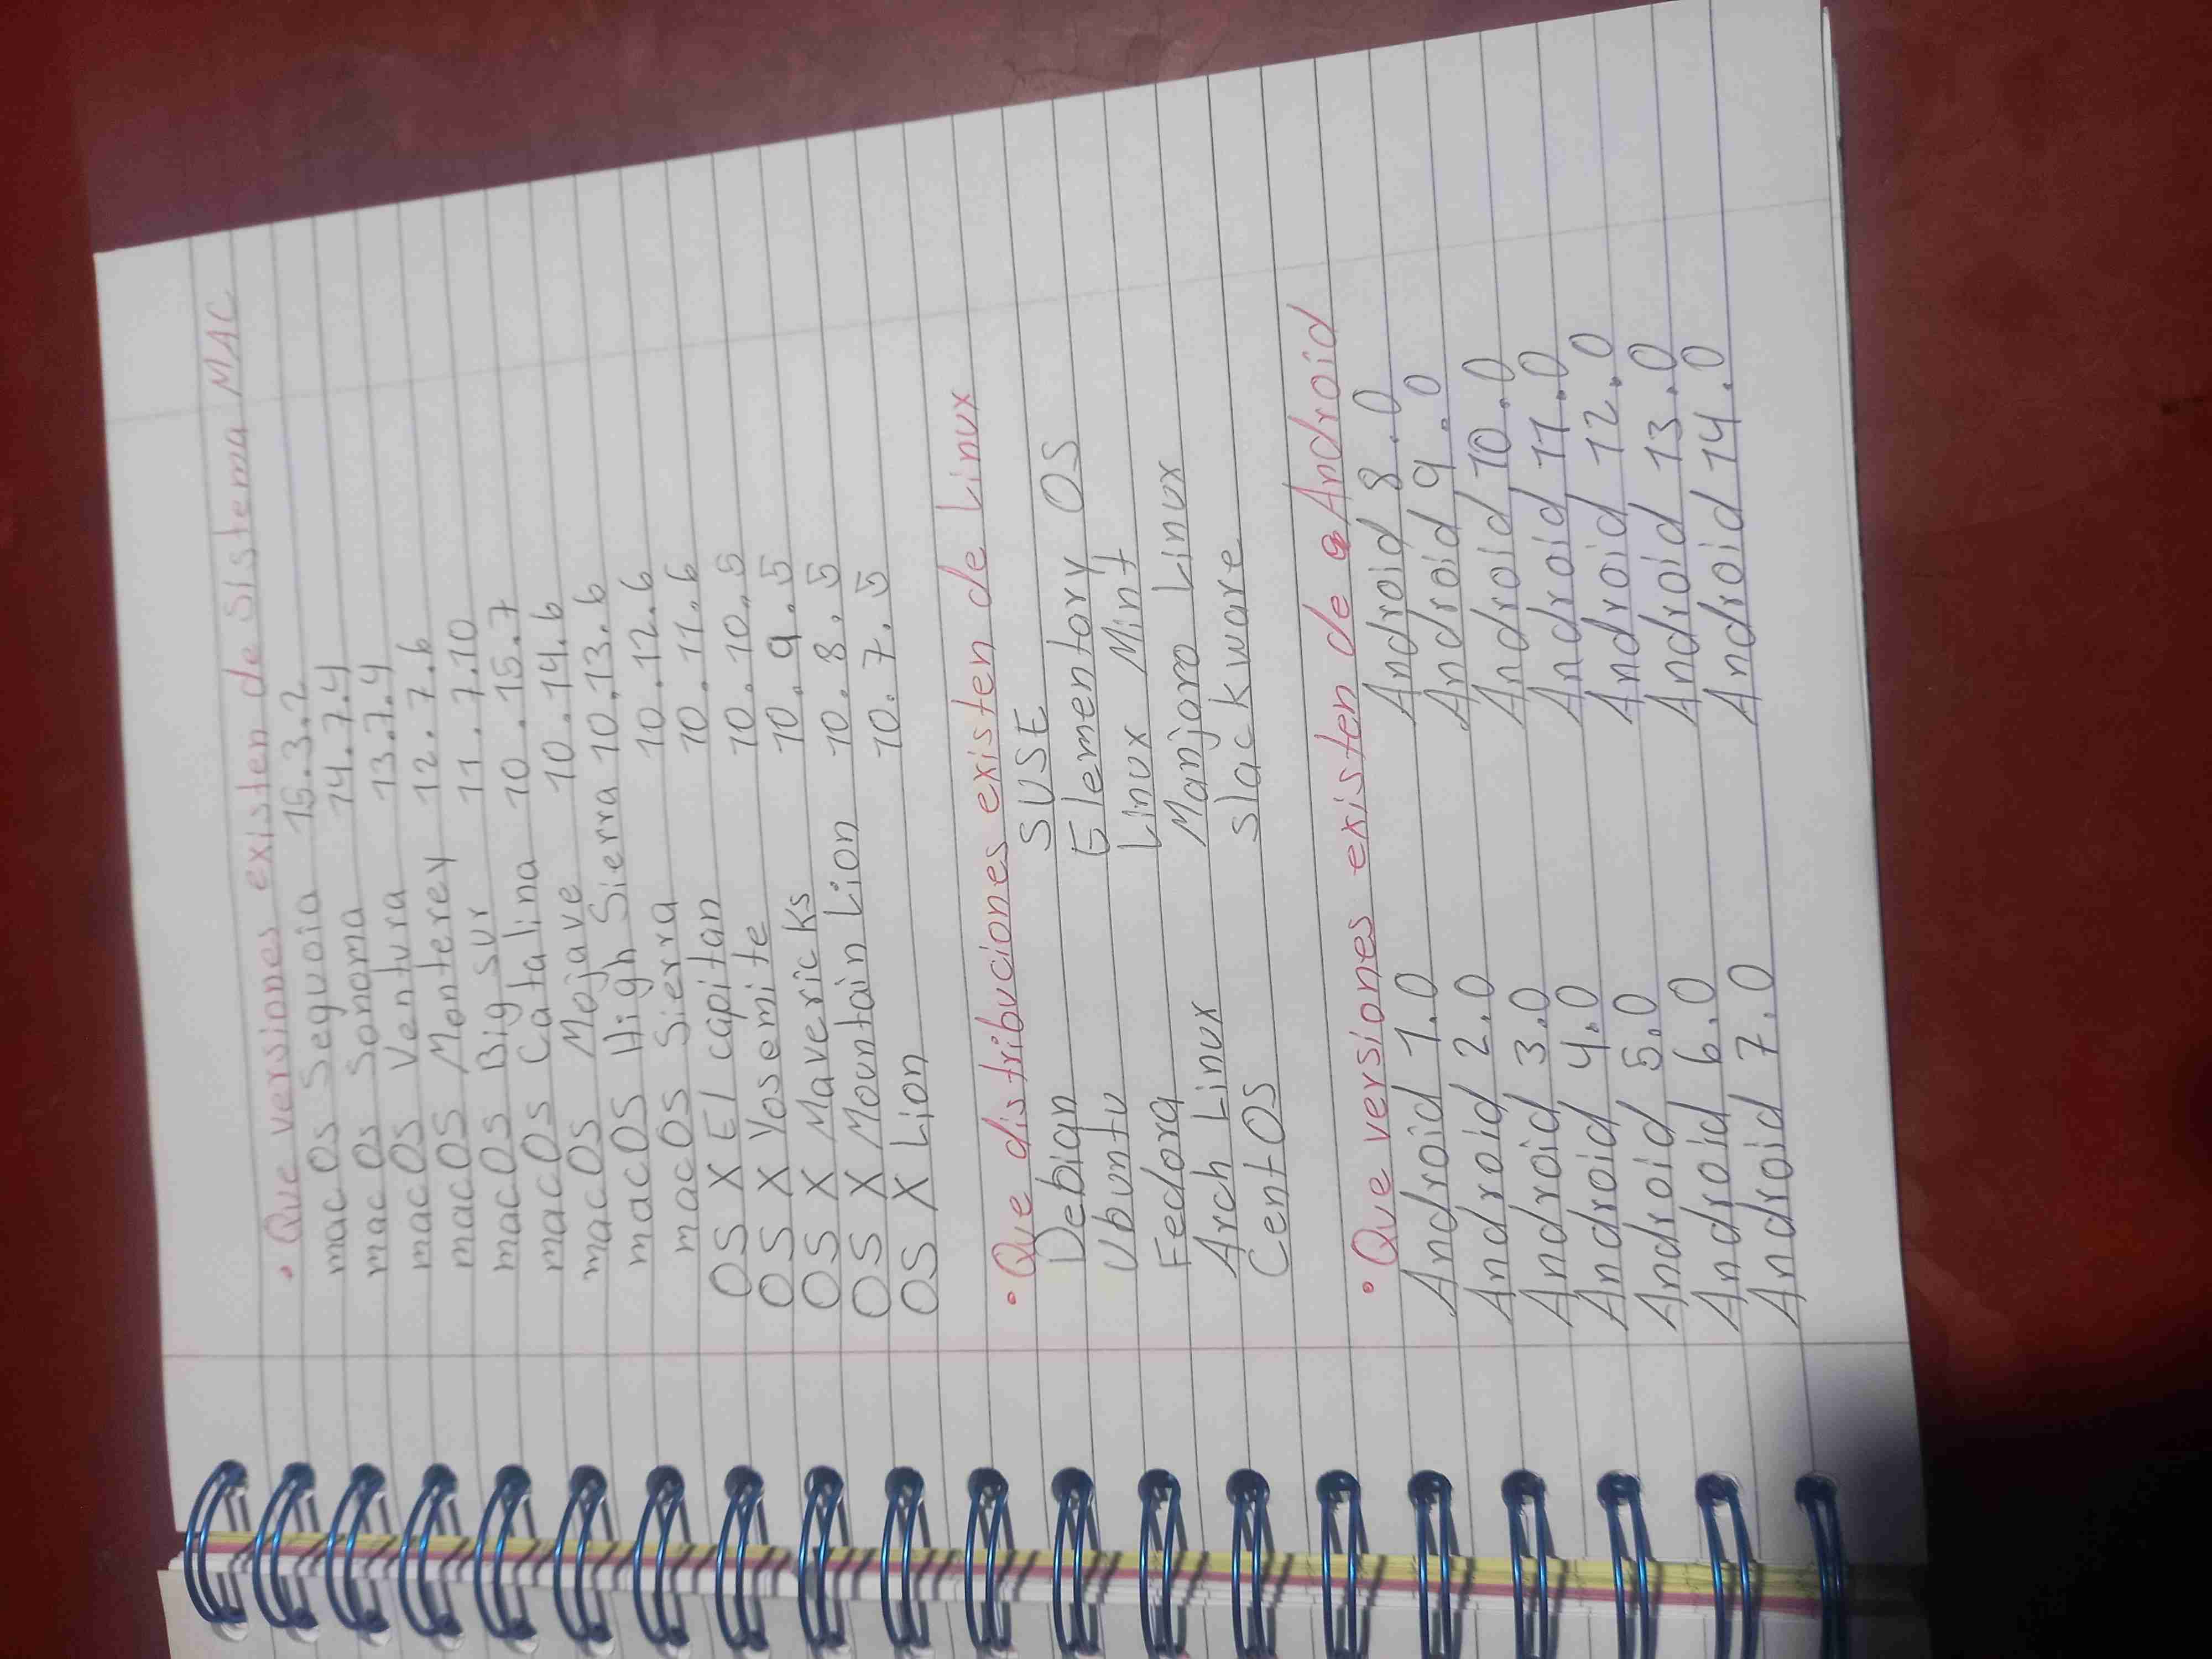 • Que versiones existen de Sistema MAC
macOs Sequoia 15.3.2
macOs Sonoma 14.7.4
macOS Ventura 13.7.4
macOS Monterey 12.7.6
macOS Big sur 11.7.10
macOs Catalina 10.15.7
macOS Mojave 10.14.6
macOS High Sierra 10.13.6
macOS Sierra 10.12.6
OS X El capitan 10.11.6
OS X Yosemite 10.10.5
OS X Mavericks 10.9.5
OS X Mountain Lion 10.8.5
OS X Lion 10.7.5
• Que distribuciones existen de Linux
Debian SUSE
Ubuntu Elementory OS
Fedora Linux Mint
Arch Linux Manjaro Linux
CentOS slackware
• Que versiones existen de Android
Android 1.0 Android 8.0
Android 2.0 Android 9.0
Android 3.0 Android 10.0
Android 4.0 Android 11.0
Android 5.0 Android 12.0
Android 6.0 Android 13.0
Android 7.0 Android 14.0